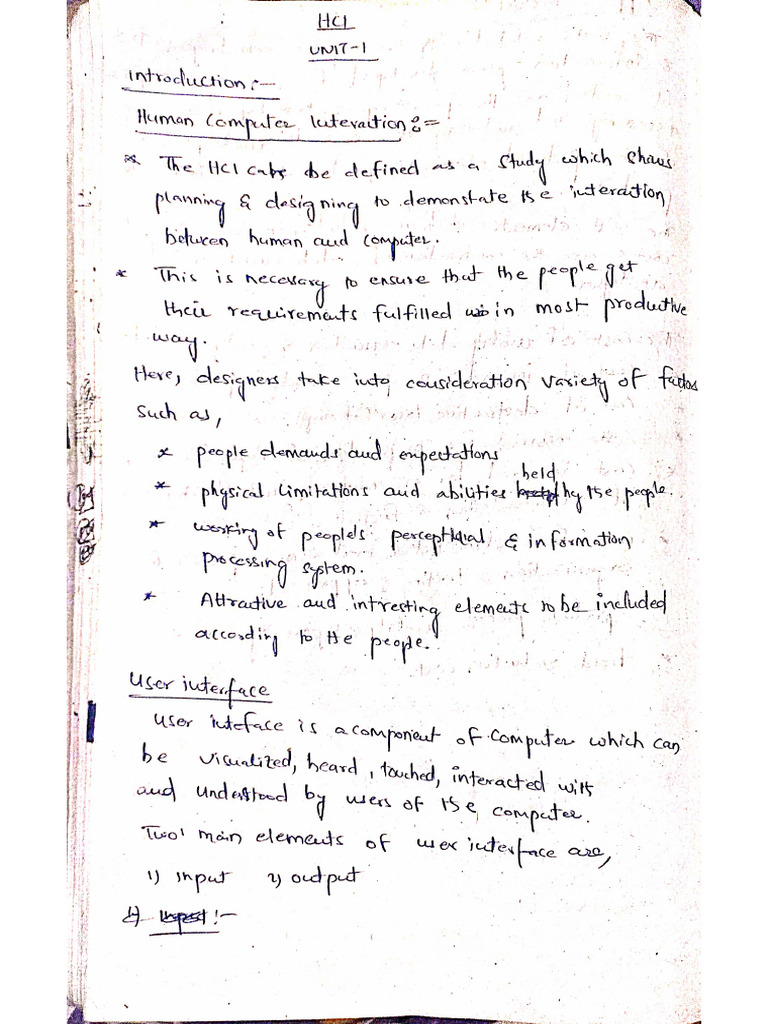 HCI
UNIT-1
Introduction:-
Human Computer Interaction:=
* The HCI can be defined as a study which shows
planning & designing to demonstate the interaction
between human and computer.
* This is necessary to ensure that the people get
their requirements fulfilled in most productive
way.
Here, designers take into consideration variety of factors
such as,
* people demands and expectations
held
* physical limitations and abilities by the people.
* working of people's perceptual & information
processing system.
* Attractive and intresting elements to be included
according to the people.
User interface
User inteface is a component of computer which can
be visualized, heard, touched, interacted with
and understood by users of the computer.
Two main elements of user interface are,
1) Input 2) output
1) Input:-